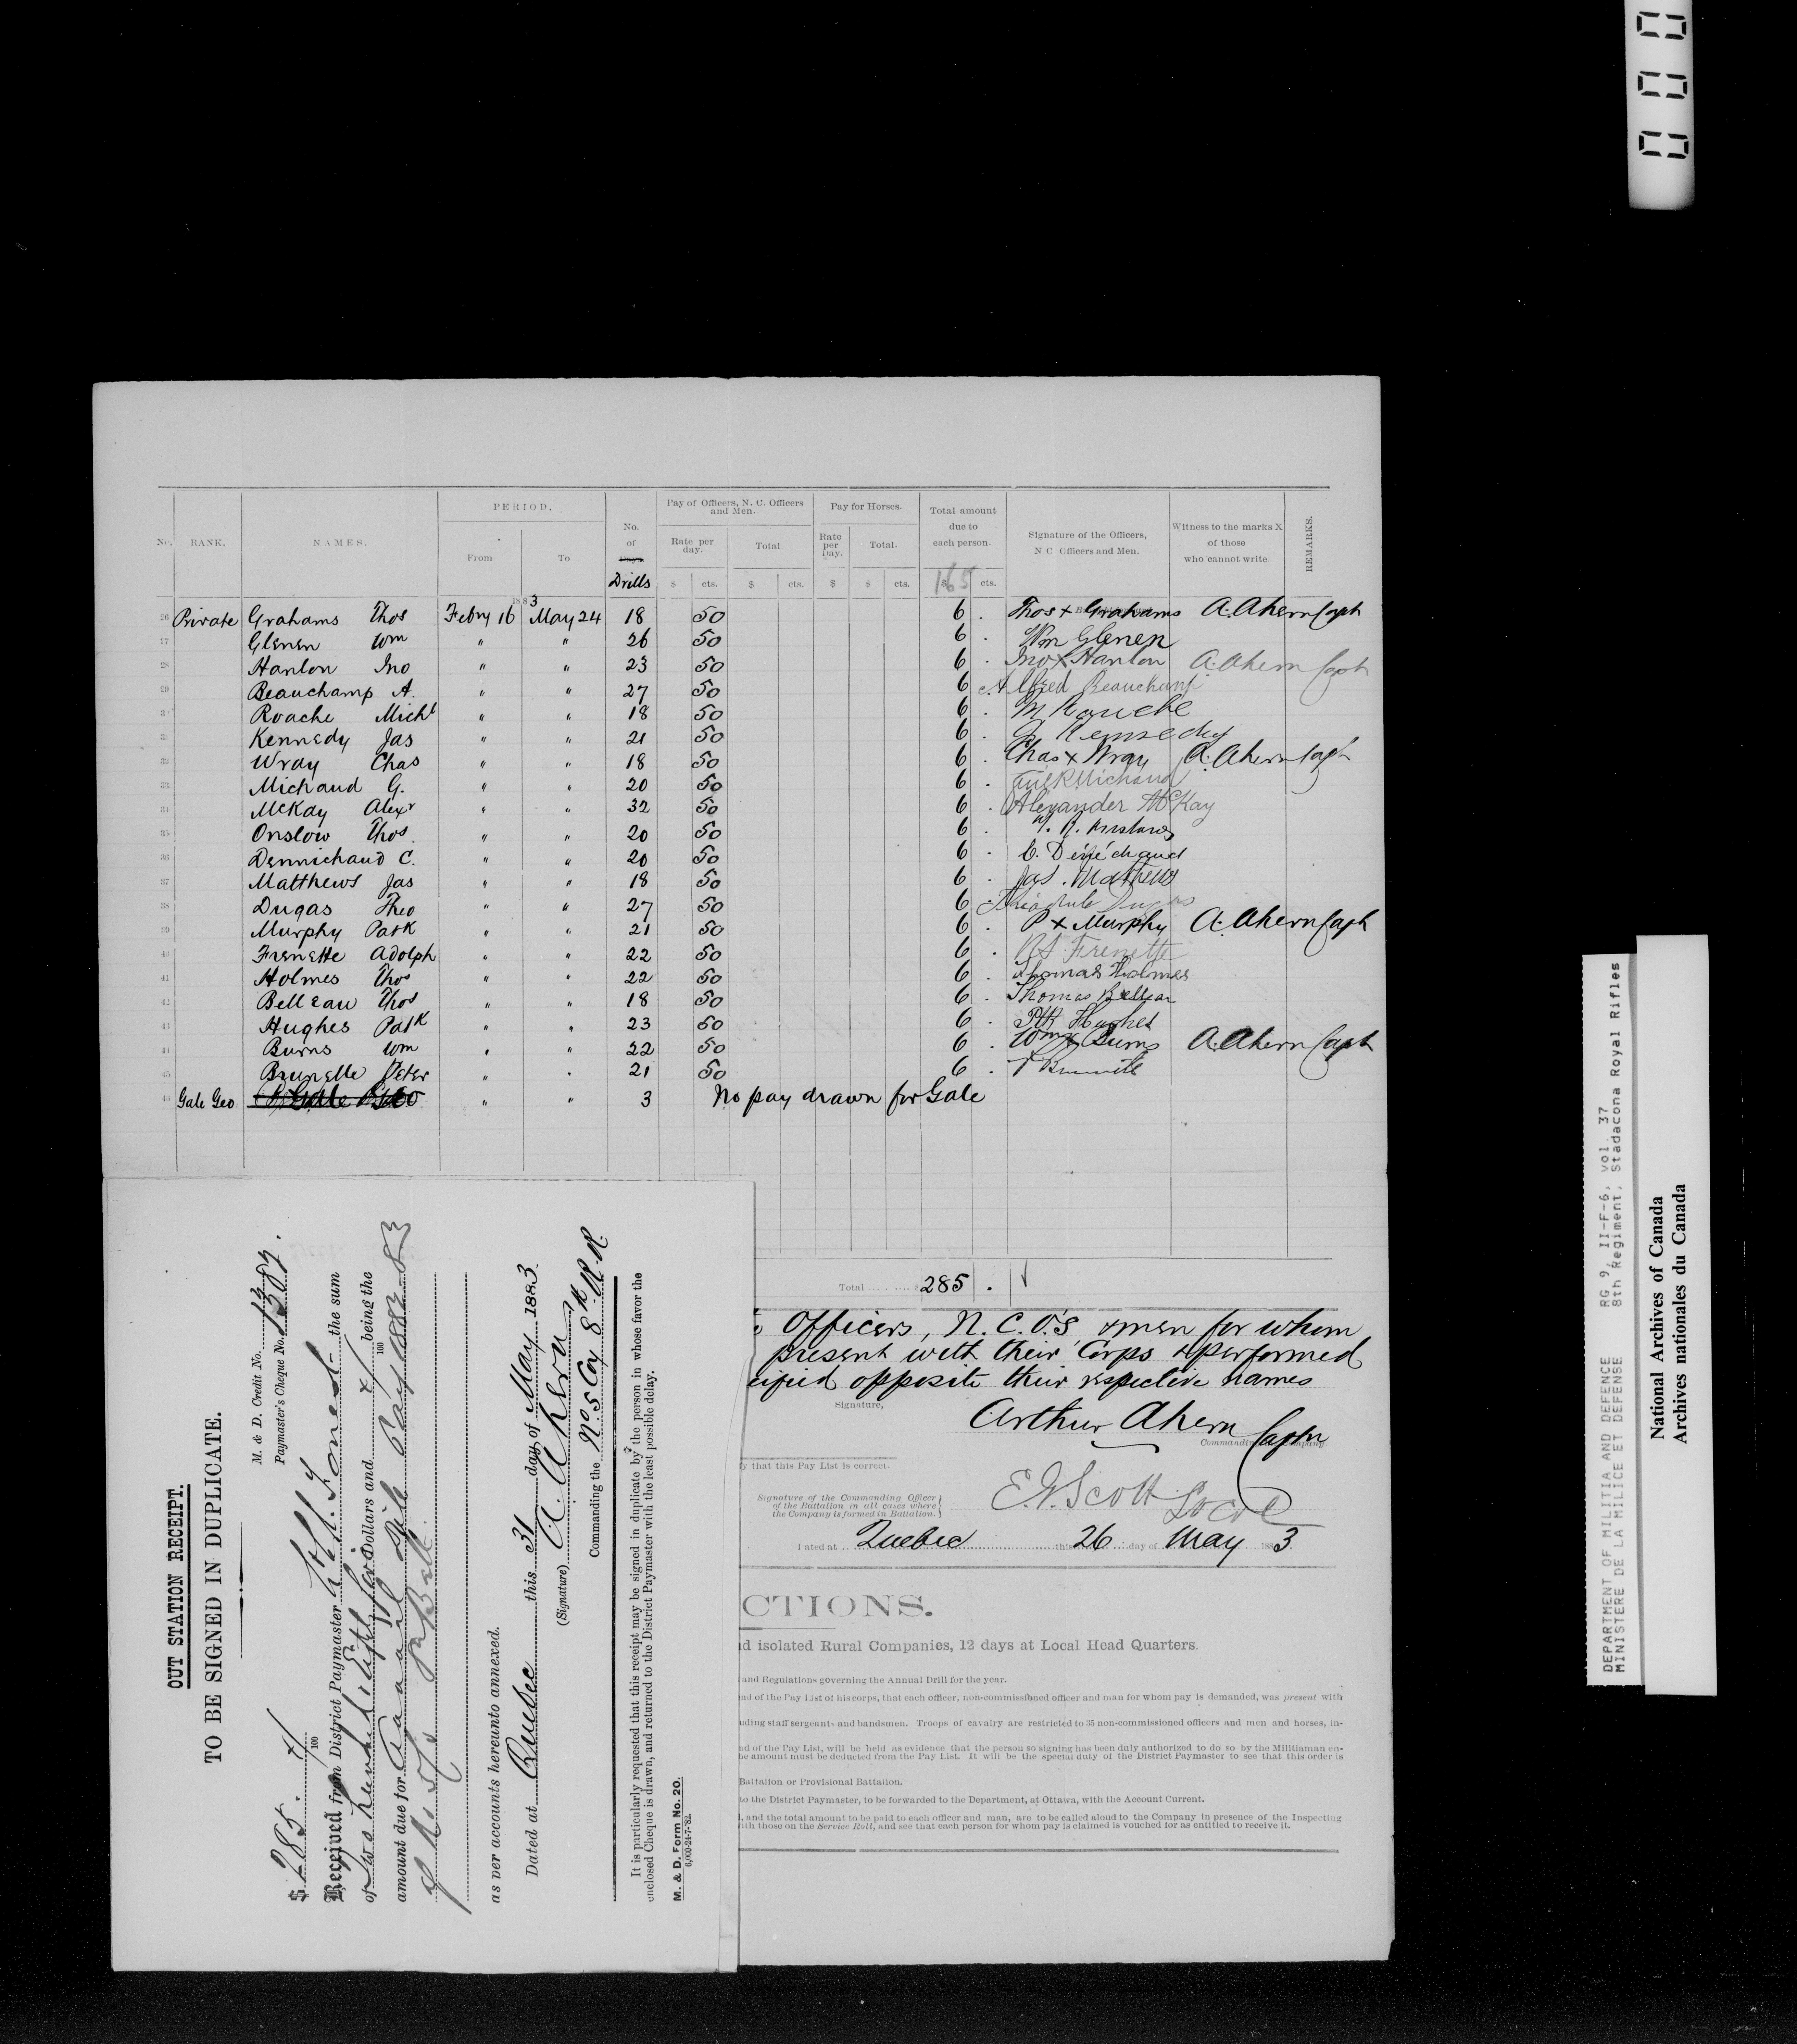 PERIOD.
Pay of Officers, N. C. Officers and Men.
Pay for Horses.
No. RANK. NAMES. From To No. of Days Drills Rate per day. Total Rate per Day. Total. Total amount due to each person. Signature of the Officers, N C Officers and Men. Witness to the marks X of those who cannot write. REMARKS.
$ cts. $ cts. $ $ cts. $ cts.
165
1883
26 Private Grahams Thos Febry 16 May 24 18 50 6 . Thos x Grahams A. Ahern Capt
27 Glenen Wm " " 26 50 6 . Wm Glenen
28 Hanlon Jno " " 23 50 6 . Jno x Hanlon A. Ahern Capt
29 Beauchamp A. " " 27 50 6 Alfred Beauchamp
Roache Michl " " 18 50 6 . M Rouche
Kennedy Jas " " 21 50 6 . J Kennedy
32 Wray Chas " " 18 50 6 . Chas x Wray A. Ahern Capt
33 Michaud G. " " 20 50 6 . Michaud
34 McKay Alexr " " 32 50 6 . Alexander McKay
35 Onslow Thos " " 20 50 6 . Onslow
36 Dennichaud C. " " 20 50 6 . C. Déféchaud
37 Matthews Jas " " 18 50 6 . Jas. Mathews
38 Dugas Theo " " 27 50 6 . Dugas
39 Murphy Patk " " 21 50 6 . P x Murphy A. Ahern Capt
40 Frenette Adolph " " 22 50 6 . Frenette
41 Holmes Thos " " 22 50 6 . Thomas Holmes
42 Belleau Thos " " 18 50 6 . Thomas Belleau
43 Hughes Patk " " 23 50 6 . Ptk Hughes
44 Burns Wm " " 22 50 6 . Wm x Burns A. Ahern Capt
45 Brunelle Peter " " 21 50 6 . P Brunelle
46 Gale Geo " " 3 No pay drawn for Gale
Total 285 .
Officers, N.C.O.'s & men for whom
present with their Corps & performed
cified opposite their respective names
Signature,
Arthur Ahern Captn
Commanding Company
y that this Pay List is correct.
Signature of the Commanding Officer of the Battalion in all cases where the Company is formed in Battalion.
E.J. Scott Lt Col
Dated at Quebec this 26 day of May 1883
CTIONS.
d isolated Rural Companies, 12 days at Local Head Quarters.
and Regulations governing the Annual Drill for the year.
nd of the Pay List of his corps, that each officer, non-commissioned officer and man for whom pay is demanded, was present with
uding staff sergeants and bandsmen. Troops of cavalry are restricted to 35 non-commissioned officers and men and horses, in-
nd of the Pay List, will be held as evidence that the person so signing has been duly authorized to do so by the Militiaman en-
he amount must be deducted from the Pay List. It will be the special duty of the District Paymaster to see that this order is
Battalion or Provisional Battalion.
to the District Paymaster, to be forwarded to the Department, at Ottawa, with the Account Current.
l, and the total amount to be paid to each officer and man, are to be called aloud to the Company in presence of the Inspecting
ith those on the Service Roll, and see that each person for whom pay is claimed is vouched for as entitled to receive it.
OUT STATION RECEIPT.
TO BE SIGNED IN DUPLICATE.
M. & D. Credit No.
Paymaster's Cheque No. 1387.
$ 285. x/100
Received from District Paymaster Forrest the sum
of Two hundred Eighty five Dollars and x/100 being the
amount due for Annual Drill Pay 1882-83
of No 5 Co 8 Batt
as per accounts hereunto annexed.
Dated at Quebec this 31 day of May 1883.
(Signature) A. Ahern
Commanding the No 5 Coy 8th R.R
It is particularly requested that this receipt may be signed in duplicate by the person in whose favor the
enclosed Cheque is drawn, and returned to the District Paymaster with the least possible delay.
M. & D. Form No. 20.
6,000-24-7-'82.
000
DEPARTMENT OF MILITIA AND DEFENCE RG 9, II-F-6, vol. 37
MINISTERE DE LA MILICE ET DEFENSE 8th Regiment, Stadacona Royal Rifles
National Archives of Canada
Archives nationales du Canada